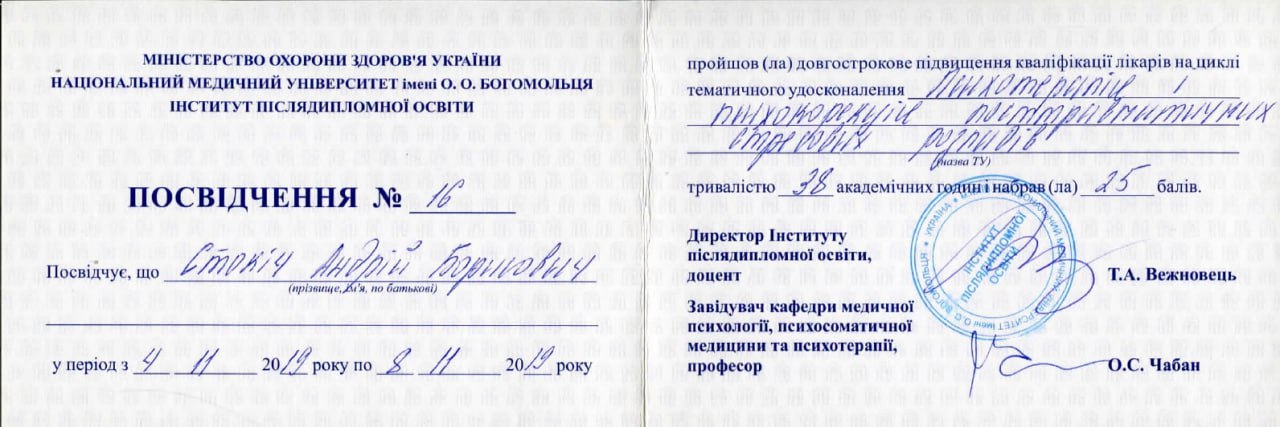 МІНІСТЕРСТВО ОХОРОНИ ЗДОРОВ'Я УКРАЇНИ
НАЦІОНАЛЬНИЙ МЕДИЧНИЙ УНІВЕРСИТЕТ імені О. О. БОГОМОЛЬЦЯ
ІНСТИТУТ ПІСЛЯДИПЛОМНОЇ ОСВІТИ
ПОСВІДЧЕННЯ № 16
Посвідчує, що Андрій Борисович
(прізвище, ім'я, по батькові)
у період з 4 11 2019 року по 8 11 2019 року
пройшов (ла) довгострокове підвищення кваліфікації лікарів на циклі
тематичного удосконалення Психотерапія і
психокорекція посттравматичних
стресових розладів
(назва ТУ)
тривалістю 38 академічних годин і набрав (ла) 25 балів.
Директор Інституту
післядипломної освіти,
доцент Т.А. Вежновець
Завідувач кафедри медичної
психології, психосоматичної
медицини та психотерапії,
професор О.С. Чабан
ІНСТИТУТ
ПІСЛЯДИПЛОМНОЇ
ОСВІТИ